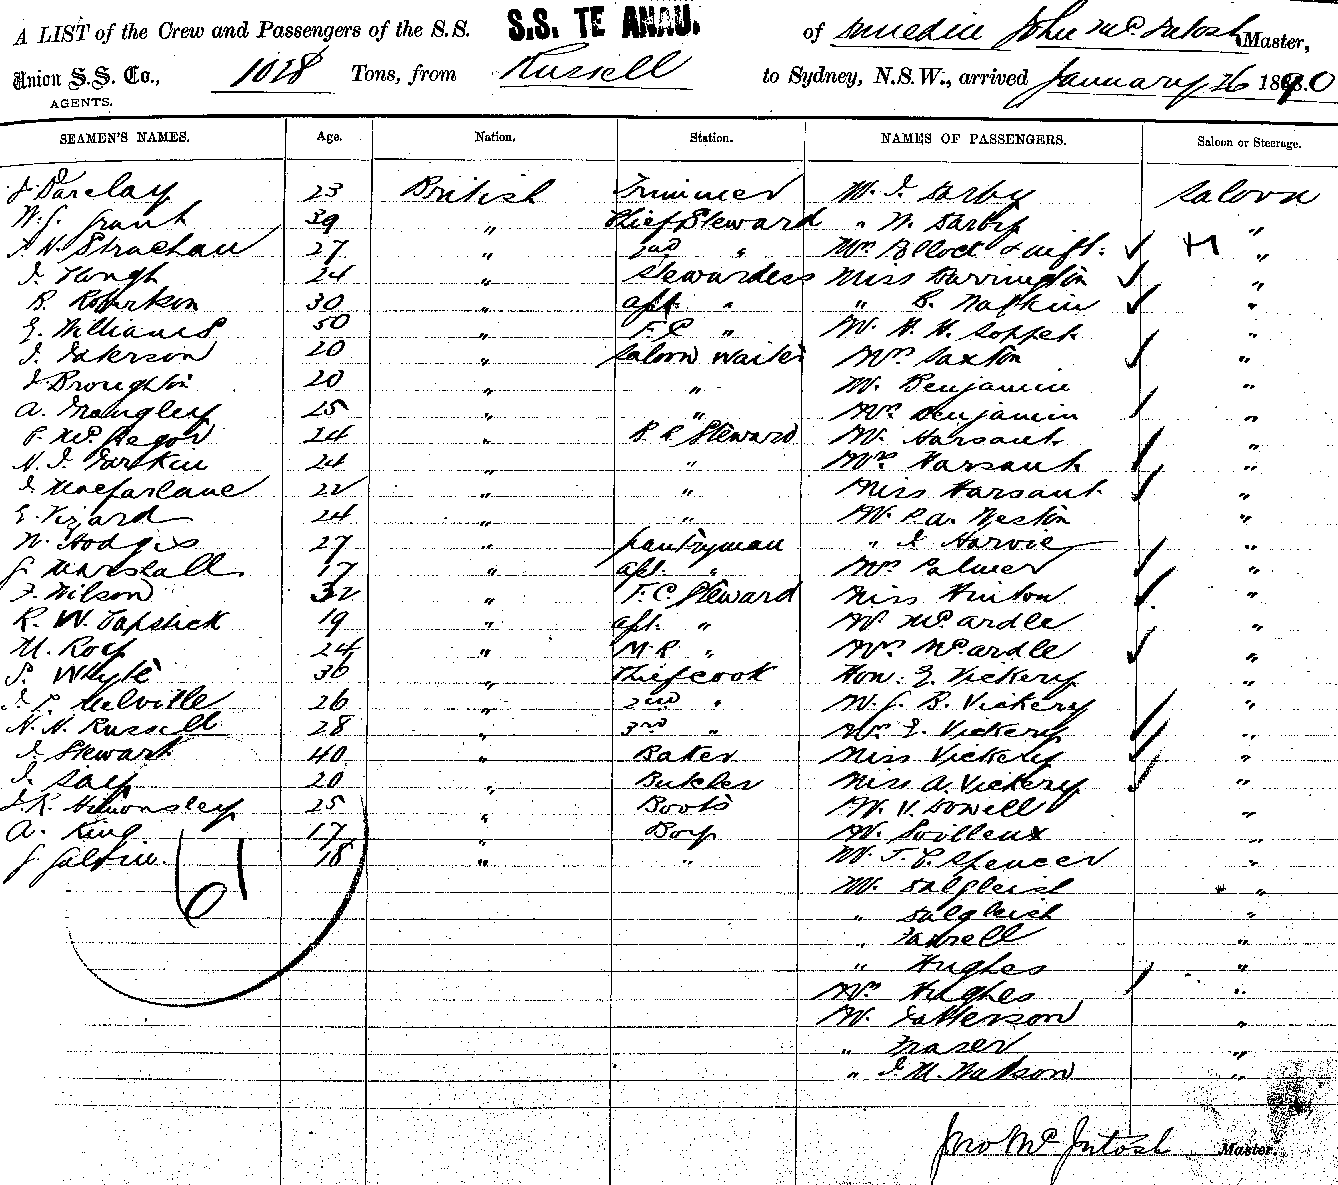 A LIST of the Crew and Passengers of the S.S. S.S. TE ANAU. of Dunedin John McIntosh Master,
Union S.S. Co., 1028 Tons, from Russell to Sydney, N.S.W., arrived January 26 1890
AGENTS.
SEAMEN'S NAMES. Age. Nation. Station. NAMES OF PASSENGERS. Saloon or Steerage.
J. Barclay 23 British Trimmer Mr. J. Darby Saloon
W. G. Grant 39 " Chief Steward " W. Darby "
Strachan 27 " 2nd " Mrs & wife H "
24 " Stewardess Miss Barrington "
R. Robertson 30 " aft " " "
E. Williams 50 " F.C. " Mr. "
J. 20 " Saloon Waiter Mrs Saxton "
J Broughton 20 " " Mr. Benjamin "
A. Langley 25 " " Mrs Benjamin "
P. McGregor 24 " Steward Mr. Harsant "
Larkin 24 " " Mrs Harsant "
J. Macfarlane 22 " " Miss Harsant "
E. Vizard 24 " " Mr. P. A. Weston "
W. Hodges 27 " Pantryman " J. Harvie "
G. Marshall 17 " aft. " Mrs Palmer "
Wilson 32 " F.C. Steward Miss Hinton "
R. W. Tapstick 19 " aft. " Mr McArdle "
M. Roy 24 " M R " Mrs McArdle "
P. Whyte 36 " Chief cook Hon. E. Vickery "
J. P. Melville 26 " 2nd " Mr. G. B. Vickery "
Russell 28 " 3rd " Mrs E. Vickery "
J. Stewart 40 " Baker Miss Vickery "
J. 20 " Butcher Miss A. Vickery "
J. R. 25 " Boots Mr. V. Dowell "
A. King 17 " Boy Mr. "
G Galvin 18 " " Mr. T. C. Spencer "
61 Mr. Dalgleish "
" Dalgleish "
" Farrell "
" Hughes "
Mrs Hughes "
Mr. Patterson "
" Fraser "
" J. M. Watson "
Jno McIntosh Master.